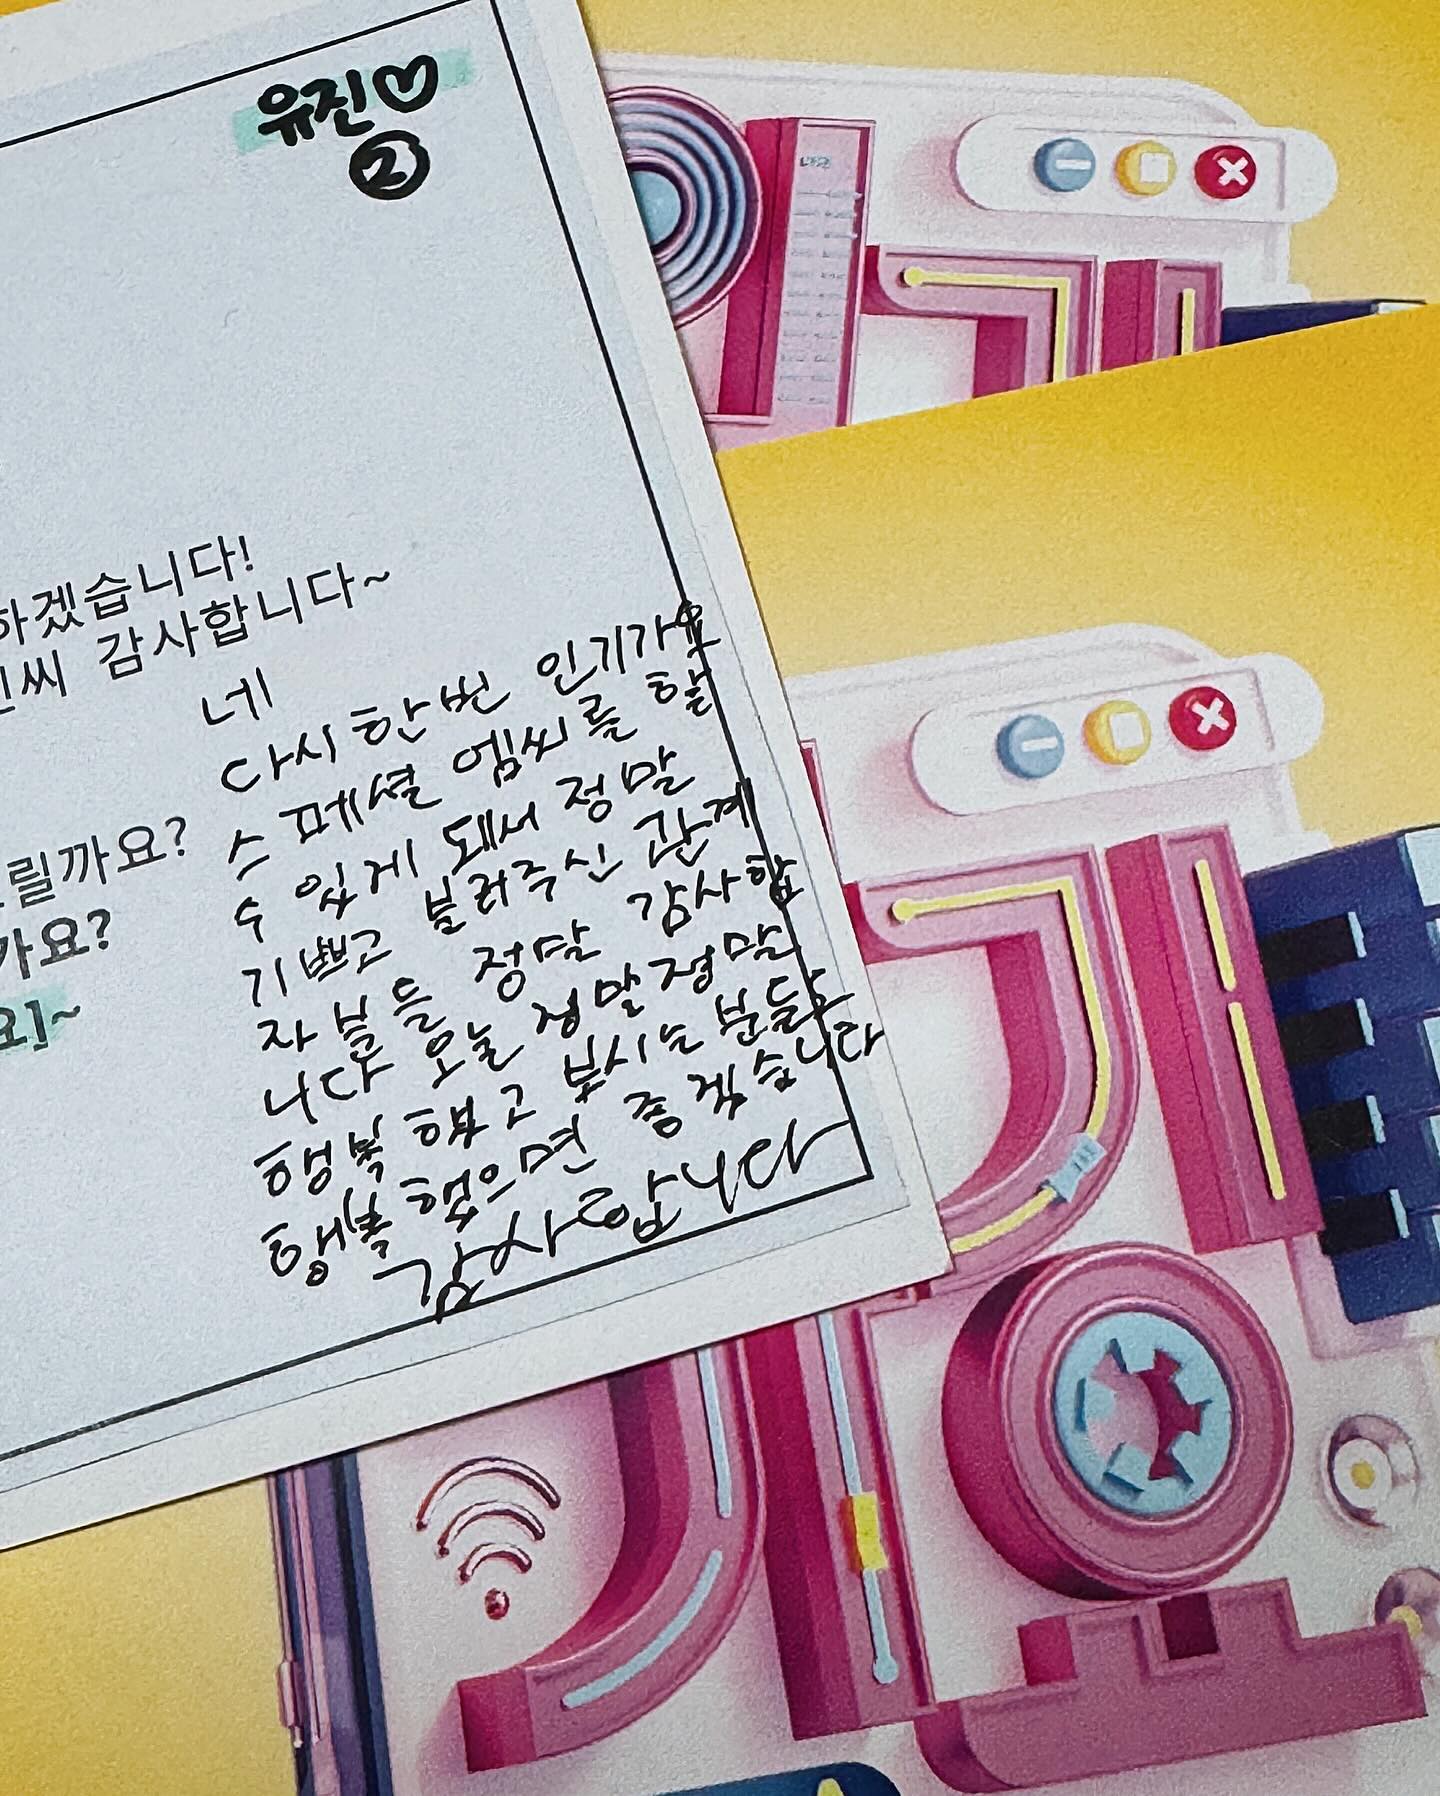 유진♡
②
하겠습니다!
씨 감사합니다~
네
다시 한번 인기가요
스페셜 엠씨를 할
수 있게 돼서 정말
기쁘고 불러주신 관계
자 분들 정말 감사합
니다 오늘 정말정말
행복했고 보시는 분들도
행복했으면 좋겠습니다
감사합니다
릴까요?
가요?
요]~
인기
기
가요